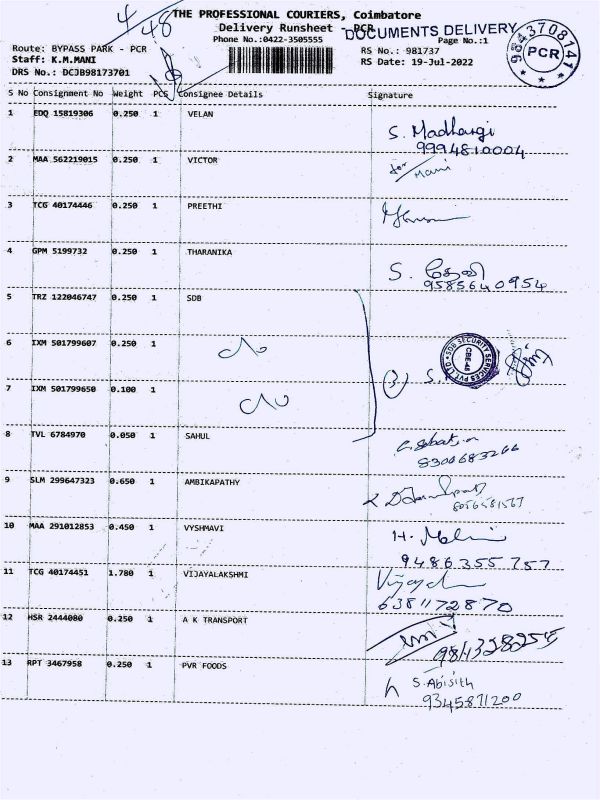 4/48
THE PROFESSIONAL COURIERS, Coimbatore
Delivery Runsheet - PCR
DOCUMENTS DELIVERY
Phone No.:0422-3505555
Page No.:1
Route: BYPASS PARK - PCR
Staff: K.M.MANI
DRS No.: DCJB98173701
RS No.: 981737
RS Date: 19-Jul-2022
9843708141
PCR
S No Consignment No Weight PCS Consignee Details Signature
1 EDQ 15819306 0.250 1 VELAN S. Madhangi
9994810004
2 MAA 562219015 0.250 1 VICTOR for Mani
3 TCG 40174446 0.250 1 PREETHI
4 GPM 5199732 0.250 1 THARANIKA S.
9585640954
5 TRZ 122046747 0.250 1 SDB
6 IXM 501799607 0.250 1
3 SDB SECURITY SERVICES PVT LTD CBE-45
7 IXM 501799650 0.100 1
8 TVL 6784970 0.050 1 SAHUL
8300683266
9 SLM 299647323 0.650 1 AMBIKAPATHY
8056581567
10 MAA 291012853 0.450 1 VYSHMAVI H.
9486355757
11 TCG 40174451 1.780 1 VIJAYALAKSHMI
6381172870
12 HSR 2444080 0.250 1 A K TRANSPORT
13 RPT 3467958 0.250 1 PVR FOODS S. Abisith
9345871200